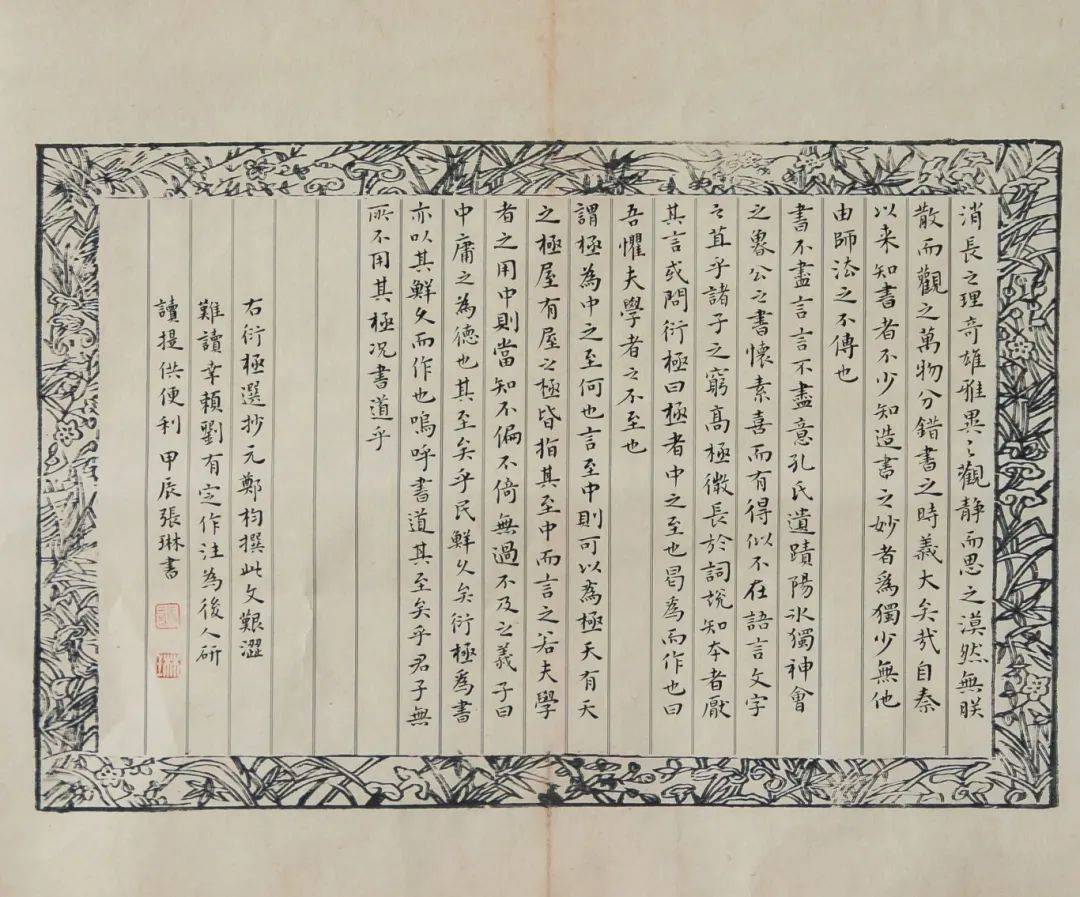 消長之理奇雄雅異之觀静而思之漠然無朕
散而觀之萬物分錯書之時義大矣哉自秦
以来知書者不少知造書之妙者爲獨少無他
由師法之不傳也
書不盡言言不盡意孔氏遺蹟陽冰獨神會
之魯公之書懷素喜而有得似不在語言文字
之苴乎諸子之窮高極微長於詞說知本者厭
其言或問衍極曰極者中之至也曷為而作也曰
吾懼夫學者之不至也
謂極為中之至何也言至中則可以為極天有天
之極屋有屋之極皆指其至中而言之若夫學
者之用中則當知不偏不倚無過不及之義子曰
中庸之為德也其至矣乎民鮮久矣衍極為書
亦以其鮮久而作也嗚呼書道其至矣乎君子無
所不用其極况書道乎
右衍極選抄元鄭枃撰此文艱澀
難讀幸賴劉有定作注為後人研
讀提供便利甲辰張琳書